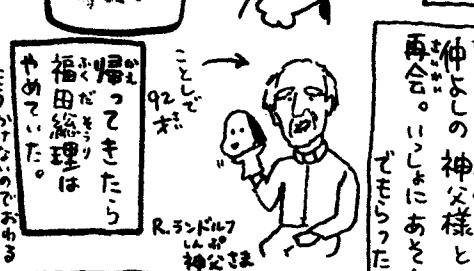 仲よしの神父様と
再会。いっしょにあそ
でもらった
ことしで
92才
R.ランドルフ
しんぷ
神父さま
帰ってきたら
福田総理は
やめていた。
かけないのでおわる